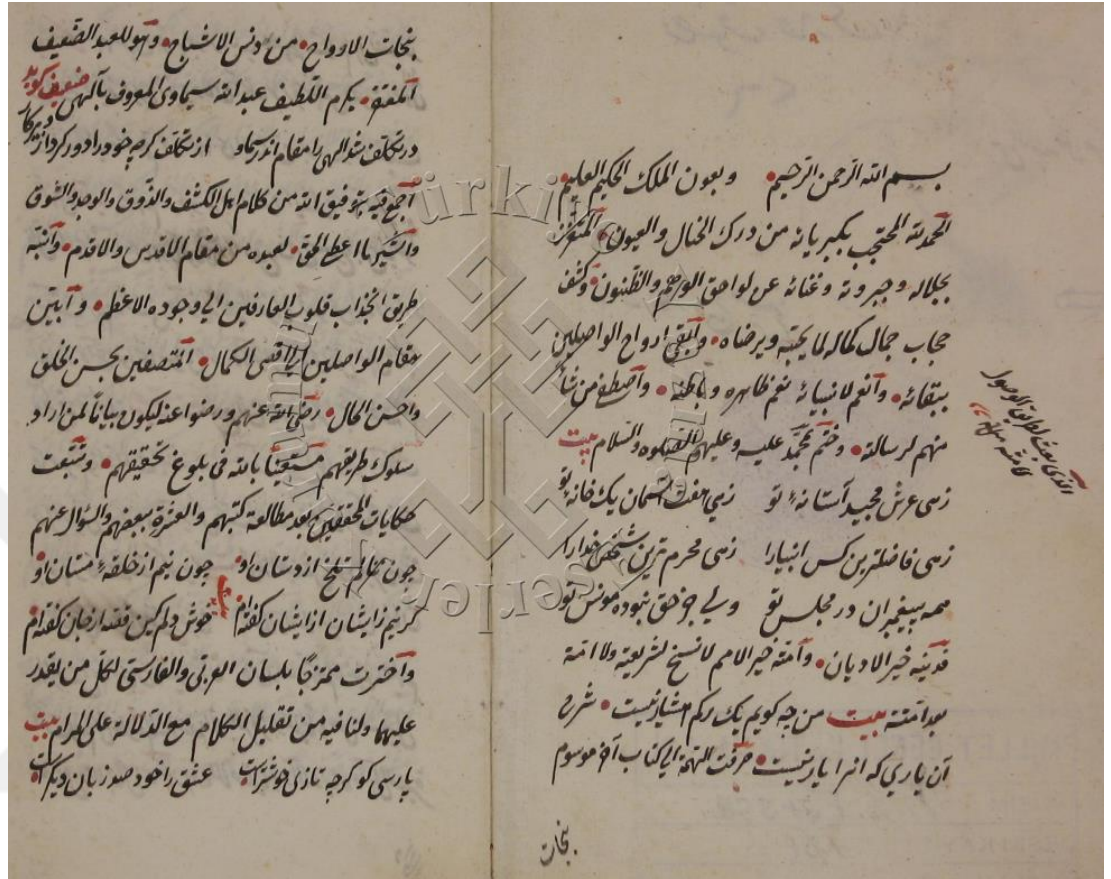 بسم الله الرحمن الرحيم وبعون الملك الحكيم العليم
الحمد لله المحتجب بكبريائه من درك الخيال والعيون المتعزز
بجلاله وجبروته وغنائه عن لواحق الوهم والظنون وكشف
حجاب جمال كماله لما يحبه ويرضاه وأبقى ارواح الواصلين
ببقائه وأنعم لانبيائه نعم ظاهره وباطنه وأصطفى من شأ
منهم لرسالته وختم بمحمد عليه وعليهم الصلوه والسلام بيت
زهى عرش مجيد آستانهٔ تو زهي هفت آسمان يك خانهٔ تو
زهى فاضلترين كس انبيارا زهى محرم ترين شخص خدارا
همه پيغمبران در مجلس تو ولي جز حق نبوده مونس تو
فدينه خير الاديان وأمته خير الامم لا نسخ لشريعته ولا امة
بعد امته بيت من چه كويم يك ركم هشيار نيست شرح
آن ياري كه انرا يار نيست صرفت الهمة الي كتاب آخر موسوم
بنجات
الذي بعث لطرايق الوصول
بنجات الارواح من دنس الاشباح وهو للعبد الضعيف
المفتقر بكرم اللطيف عبد الله سيماوى المعروف بآلهى ضعيف كويد
در تكلف شد الهى را مقام اندر سماو از تكلف كرچه خود را دور كرد از
أجمع فيه بتوفيق الله من كلام اهل الكشف والذوق والوجد والشوق
وأشير باعطا الحق لعبده من مقام الاقدس والاقدم وأنبه
طريق انجذاب قلوب العارفين الي وجوده الاعظم وأبين
مقام الواصلين الي اقصى الكمال المتصفين بحسن الخلق
واحسن الحال رضى الله عنهم ورضوا عنه ليكون بيانا لمن اراد
سلوك طريقهم مستعينا بالله فى بلوغ تحقيقهم وتتبعت
حكايات المحققين بعد مطالعة كتبهم والعشرة ببعضهم والسؤال عنهم
چون نيم از خلقهٔ مستان او
كر نيم زايشان ازايشان كفته ام خوش دلم كين قصه از جان كفته ام
وأخترت ممتزجا بلسان العربى والفارسى لكل من يقدر
عليهما ولنا فيه من تقليل الكلام مع الدلالة على المرام بيت
پارسى كو كرچه تازى خوشترست عشق را خود صد زبان ديكرست